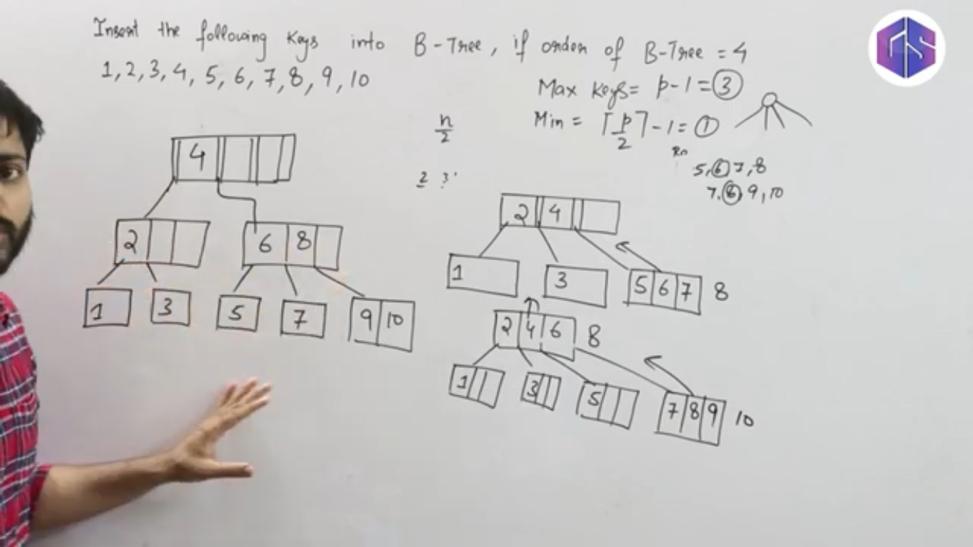 Insert the following Keys into B-Tree, if order of B-Tree = 4
1, 2, 3, 4, 5, 6, 7, 8, 9, 10
Max Keys = p-1 = 3
Min = ⌈p/2⌉ - 1 = 1
n/2
5, 6, 7, 8
7, 8, 9, 10
4
2
6 8
1
3
5
7
9 10
2 4
1
3
5 6 7 8
2 4 6 8
1
3
5
7 8 9 10